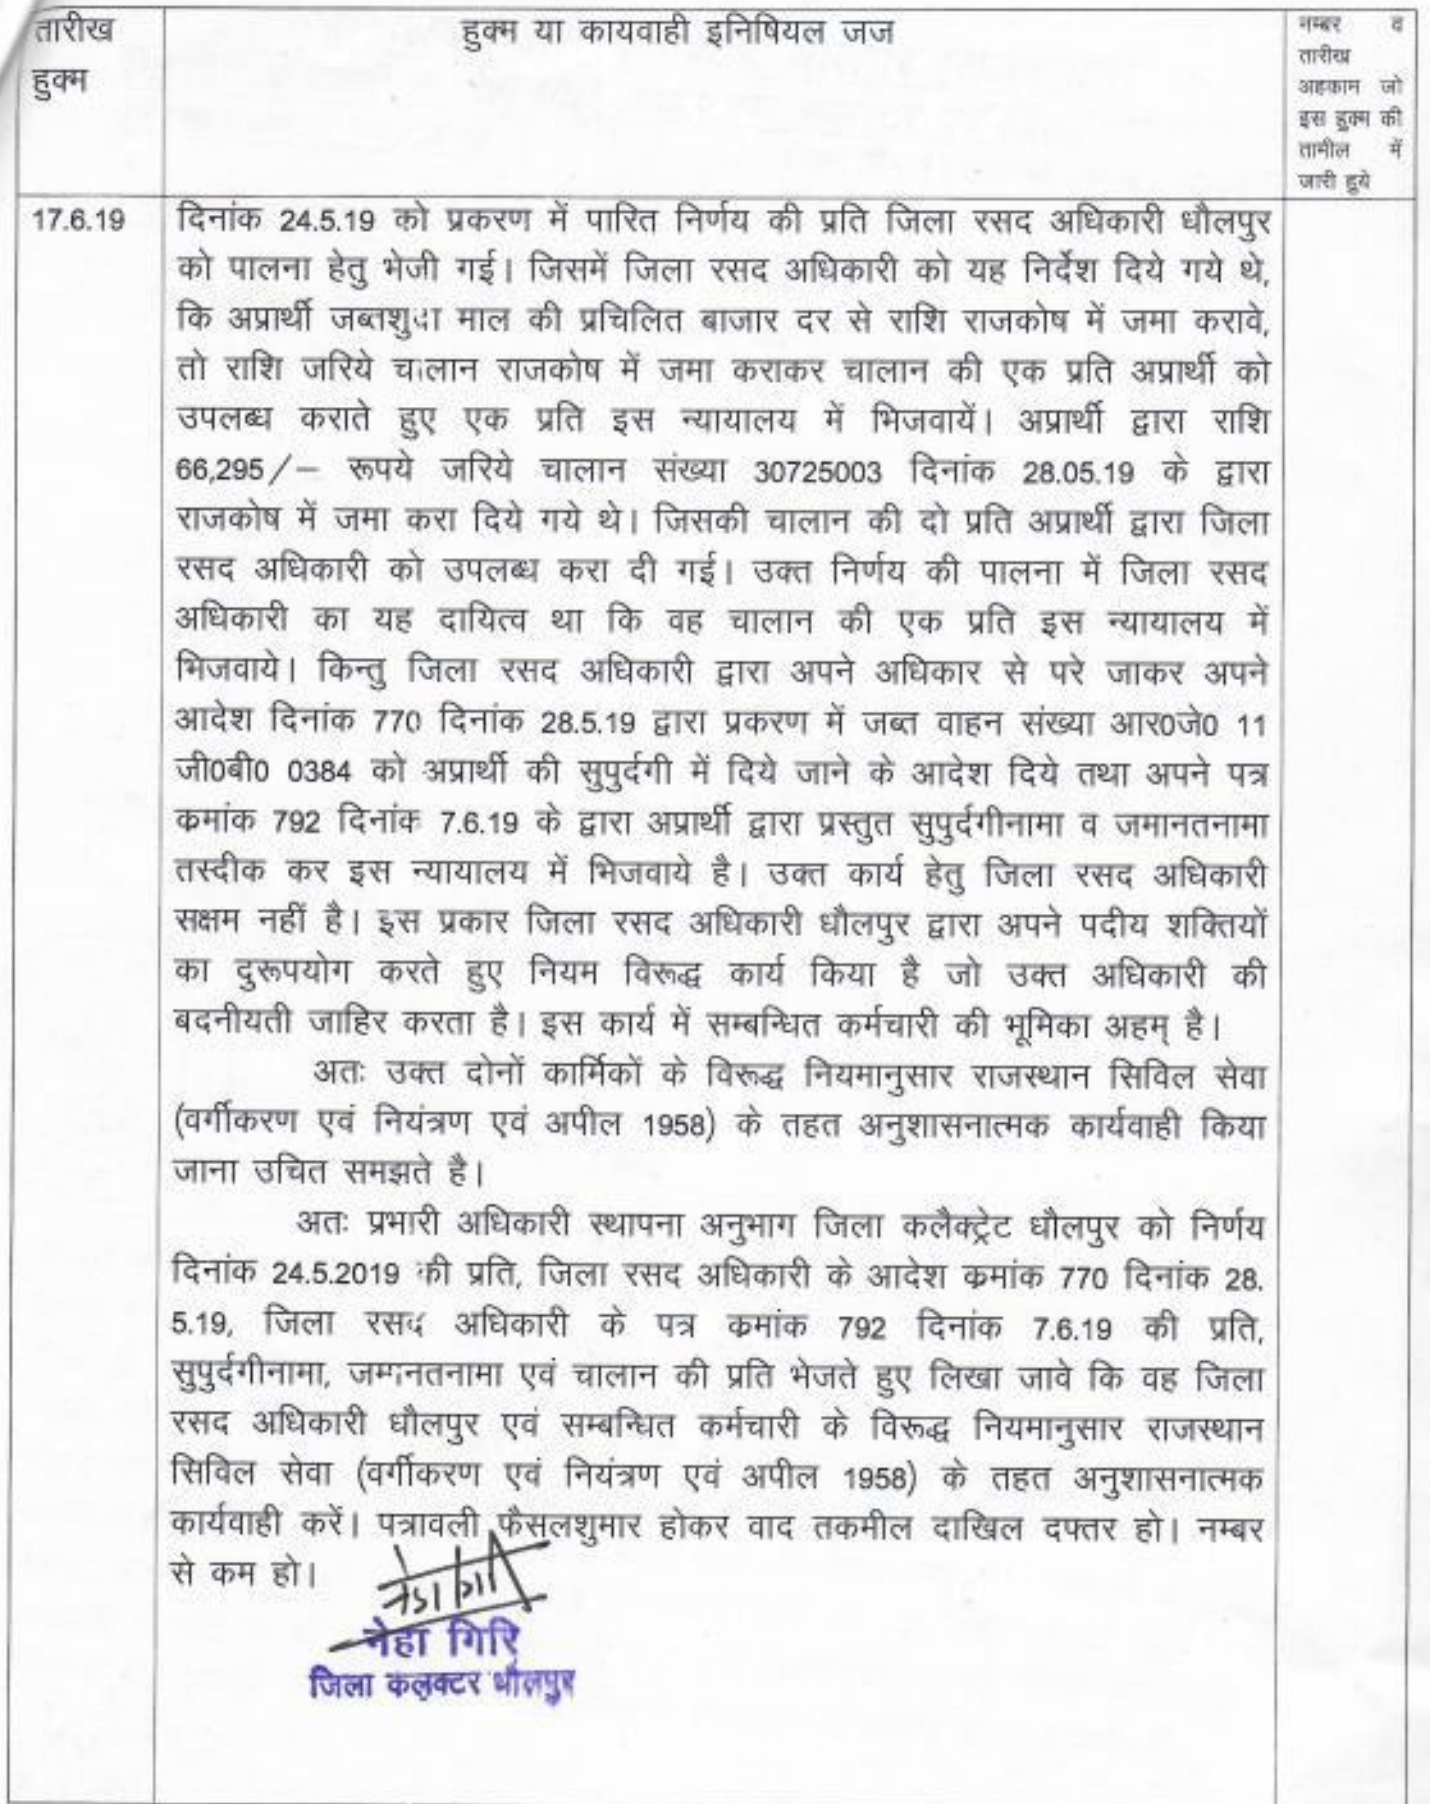 तारीख
हुक्म
हुक्म या कायवाही इनिषियल जज
नम्बर व
तारीख
अहकाम जो
इस हुक्म की
तामील में
जारी हुये
17.6.19
दिनांक 24.5.19 को प्रकरण में पारित निर्णय की प्रति जिला रसद अधिकारी धौलपुर
को पालना हेतु भेजी गई। जिसमें जिला रसद अधिकारी को यह निर्देश दिये गये थे,
कि अप्रार्थी जब्तशुदा माल की प्रचिलित बाजार दर से राशि राजकोष में जमा करावे,
तो राशि जरिये चालान राजकोष में जमा कराकर चालान की एक प्रति अप्रार्थी को
उपलब्ध कराते हुए एक प्रति इस न्यायालय में भिजवायें। अप्रार्थी द्वारा राशि
66,295/– रूपये जरिये चालान संख्या 30725003 दिनांक 28.05.19 के द्वारा
राजकोष में जमा करा दिये गये थे। जिसकी चालान की दो प्रति अप्रार्थी द्वारा जिला
रसद अधिकारी को उपलब्ध करा दी गई। उक्त निर्णय की पालना में जिला रसद
अधिकारी का यह दायित्व था कि वह चालान की एक प्रति इस न्यायालय में
भिजवाये। किन्तु जिला रसद अधिकारी द्वारा अपने अधिकार से परे जाकर अपने
आदेश दिनांक 770 दिनांक 28.5.19 द्वारा प्रकरण में जब्त वाहन संख्या आर0जे0 11
जी0बी0 0384 को अप्रार्थी की सुपुर्दगी में दिये जाने के आदेश दिये तथा अपने पत्र
क्रमांक 792 दिनांक 7.6.19 के द्वारा अप्रार्थी द्वारा प्रस्तुत सुपुर्दगीनामा व जमानतनामा
तस्दीक कर इस न्यायालय में भिजवाये है। उक्त कार्य हेतु जिला रसद अधिकारी
सक्षम नहीं है। इस प्रकार जिला रसद अधिकारी धौलपुर द्वारा अपने पदीय शक्तियों
का दुरूपयोग करते हुए नियम विरूद्ध कार्य किया है जो उक्त अधिकारी की
बदनीयती जाहिर करता है। इस कार्य में सम्बन्धित कर्मचारी की भूमिका अहम् है।
अतः उक्त दोनों कार्मिकों के विरूद्ध नियमानुसार राजस्थान सिविल सेवा
(वर्गीकरण एवं नियंत्रण एवं अपील 1958) के तहत अनुशासनात्मक कार्यवाही किया
जाना उचित समझते है।
अतः प्रभारी अधिकारी स्थापना अनुभाग जिला कलैक्ट्रेट धौलपुर को निर्णय
दिनांक 24.5.2019 की प्रति, जिला रसद अधिकारी के आदेश क्रमांक 770 दिनांक 28.
5.19, जिला रसद अधिकारी के पत्र क्रमांक 792 दिनांक 7.6.19 की प्रति,
सुपुर्दगीनामा, जमानतनामा एवं चालान की प्रति भेजते हुए लिखा जावे कि वह जिला
रसद अधिकारी धौलपुर एवं सम्बन्धित कर्मचारी के विरूद्ध नियमानुसार राजस्थान
सिविल सेवा (वर्गीकरण एवं नियंत्रण एवं अपील 1958) के तहत अनुशासनात्मक
कार्यवाही करें। पत्रावली फैसलशुमार होकर वाद तकमील दाखिल दफ्तर हो। नम्बर
से कम हो।
नेहा गिरि
जिला कलक्टर धौलपुर